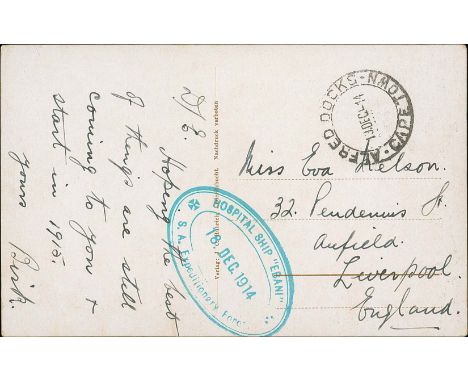 D/E. Hoping the best
of things are still
coming to you &
start in 1915
yours
Verlag: Nachdruck verboten
HOSPITAL SHIP "EBANI"
18. DEC. 1914
S. A. Expeditionary Force
ALFRED DOCKS - CAPE TOWN
DEC 14
Miss Eva Nelson.
32. Pendennis St.
Anfield.
Liverpool.
England.